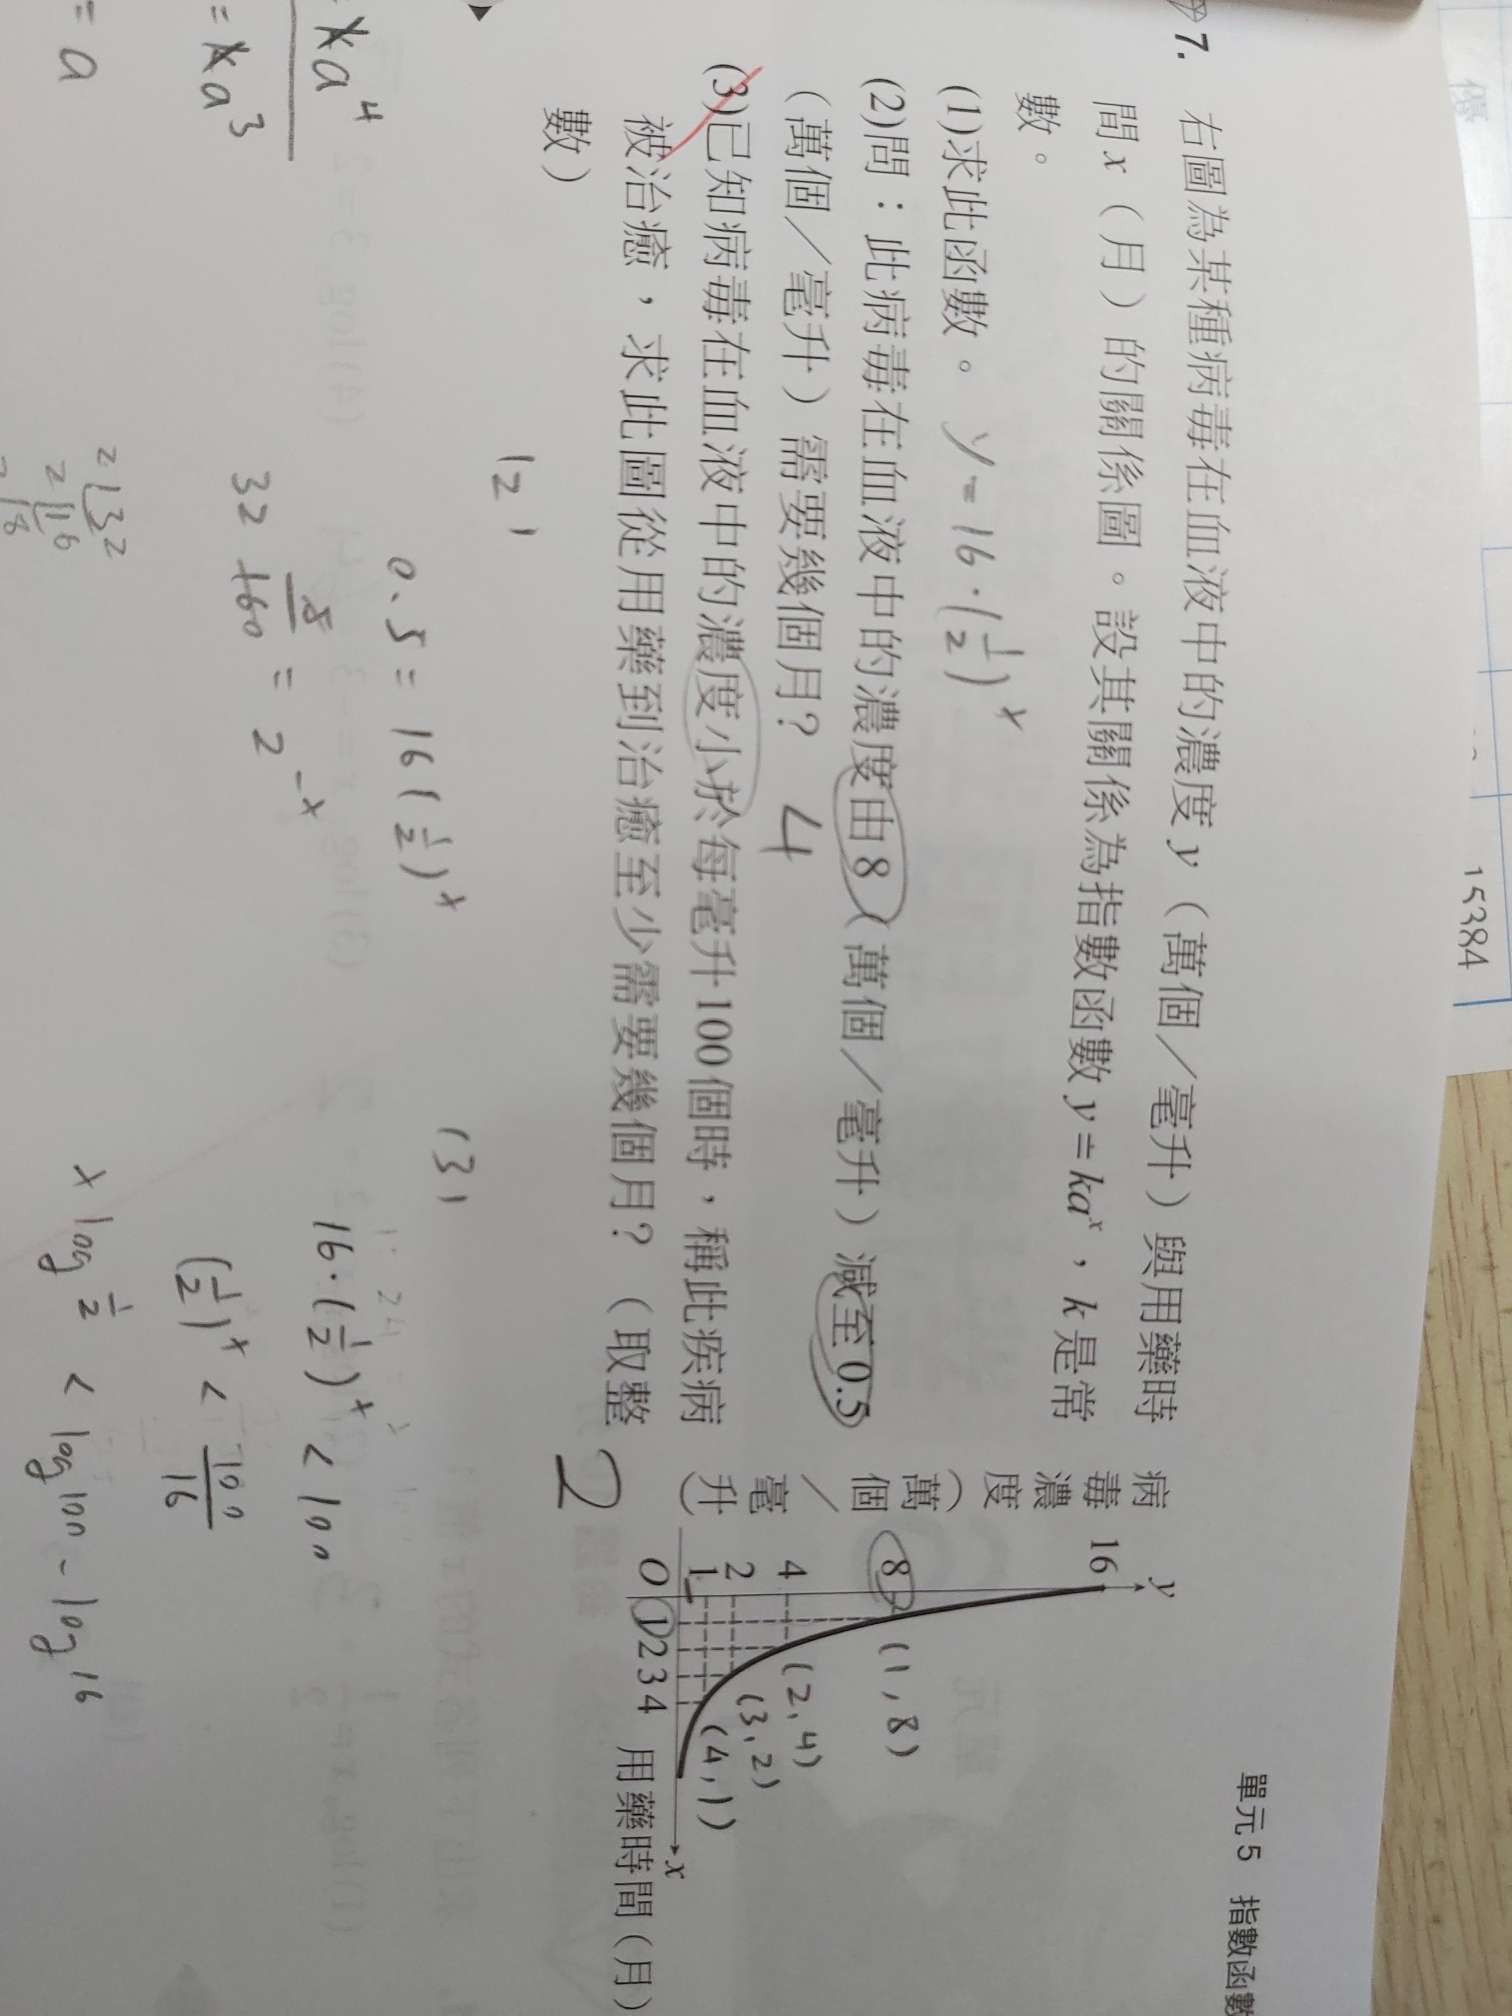 15384
單元5 指數函數
7. 右圖為某種病毒在血液中的濃度y(萬個/毫升)與用藥時
間x(月)的關係圖。設其關係為指數函數y=kaˣ,k是常
數。
(1)求此函數。 y=16·(1/2)ˣ
(2)問:此病毒在血液中的濃度由8(萬個/毫升)減至0.5
(萬個/毫升)需要幾個月? 4
(3)已知病毒在血液中的濃度小於每毫升100個時,稱此疾病
被治癒,求此圖從用藥到治癒至少需要幾個月?(取整
數) 2
病毒濃度(萬個/毫升)
y
16
8
4
2
1
O 1 2 3 4
x
用藥時間(月)
(1,8)
(2,4)
(3,2)
(4,1)
(2)
0.5=16(1/2)ˣ
32
=2⁻ˣ
2 32
2 16
2 8
(3)
16·(1/2)ˣ<100
(1/2)ˣ<100/16
x log 1/2 < log100-log16
ka⁴
=ka³
=a